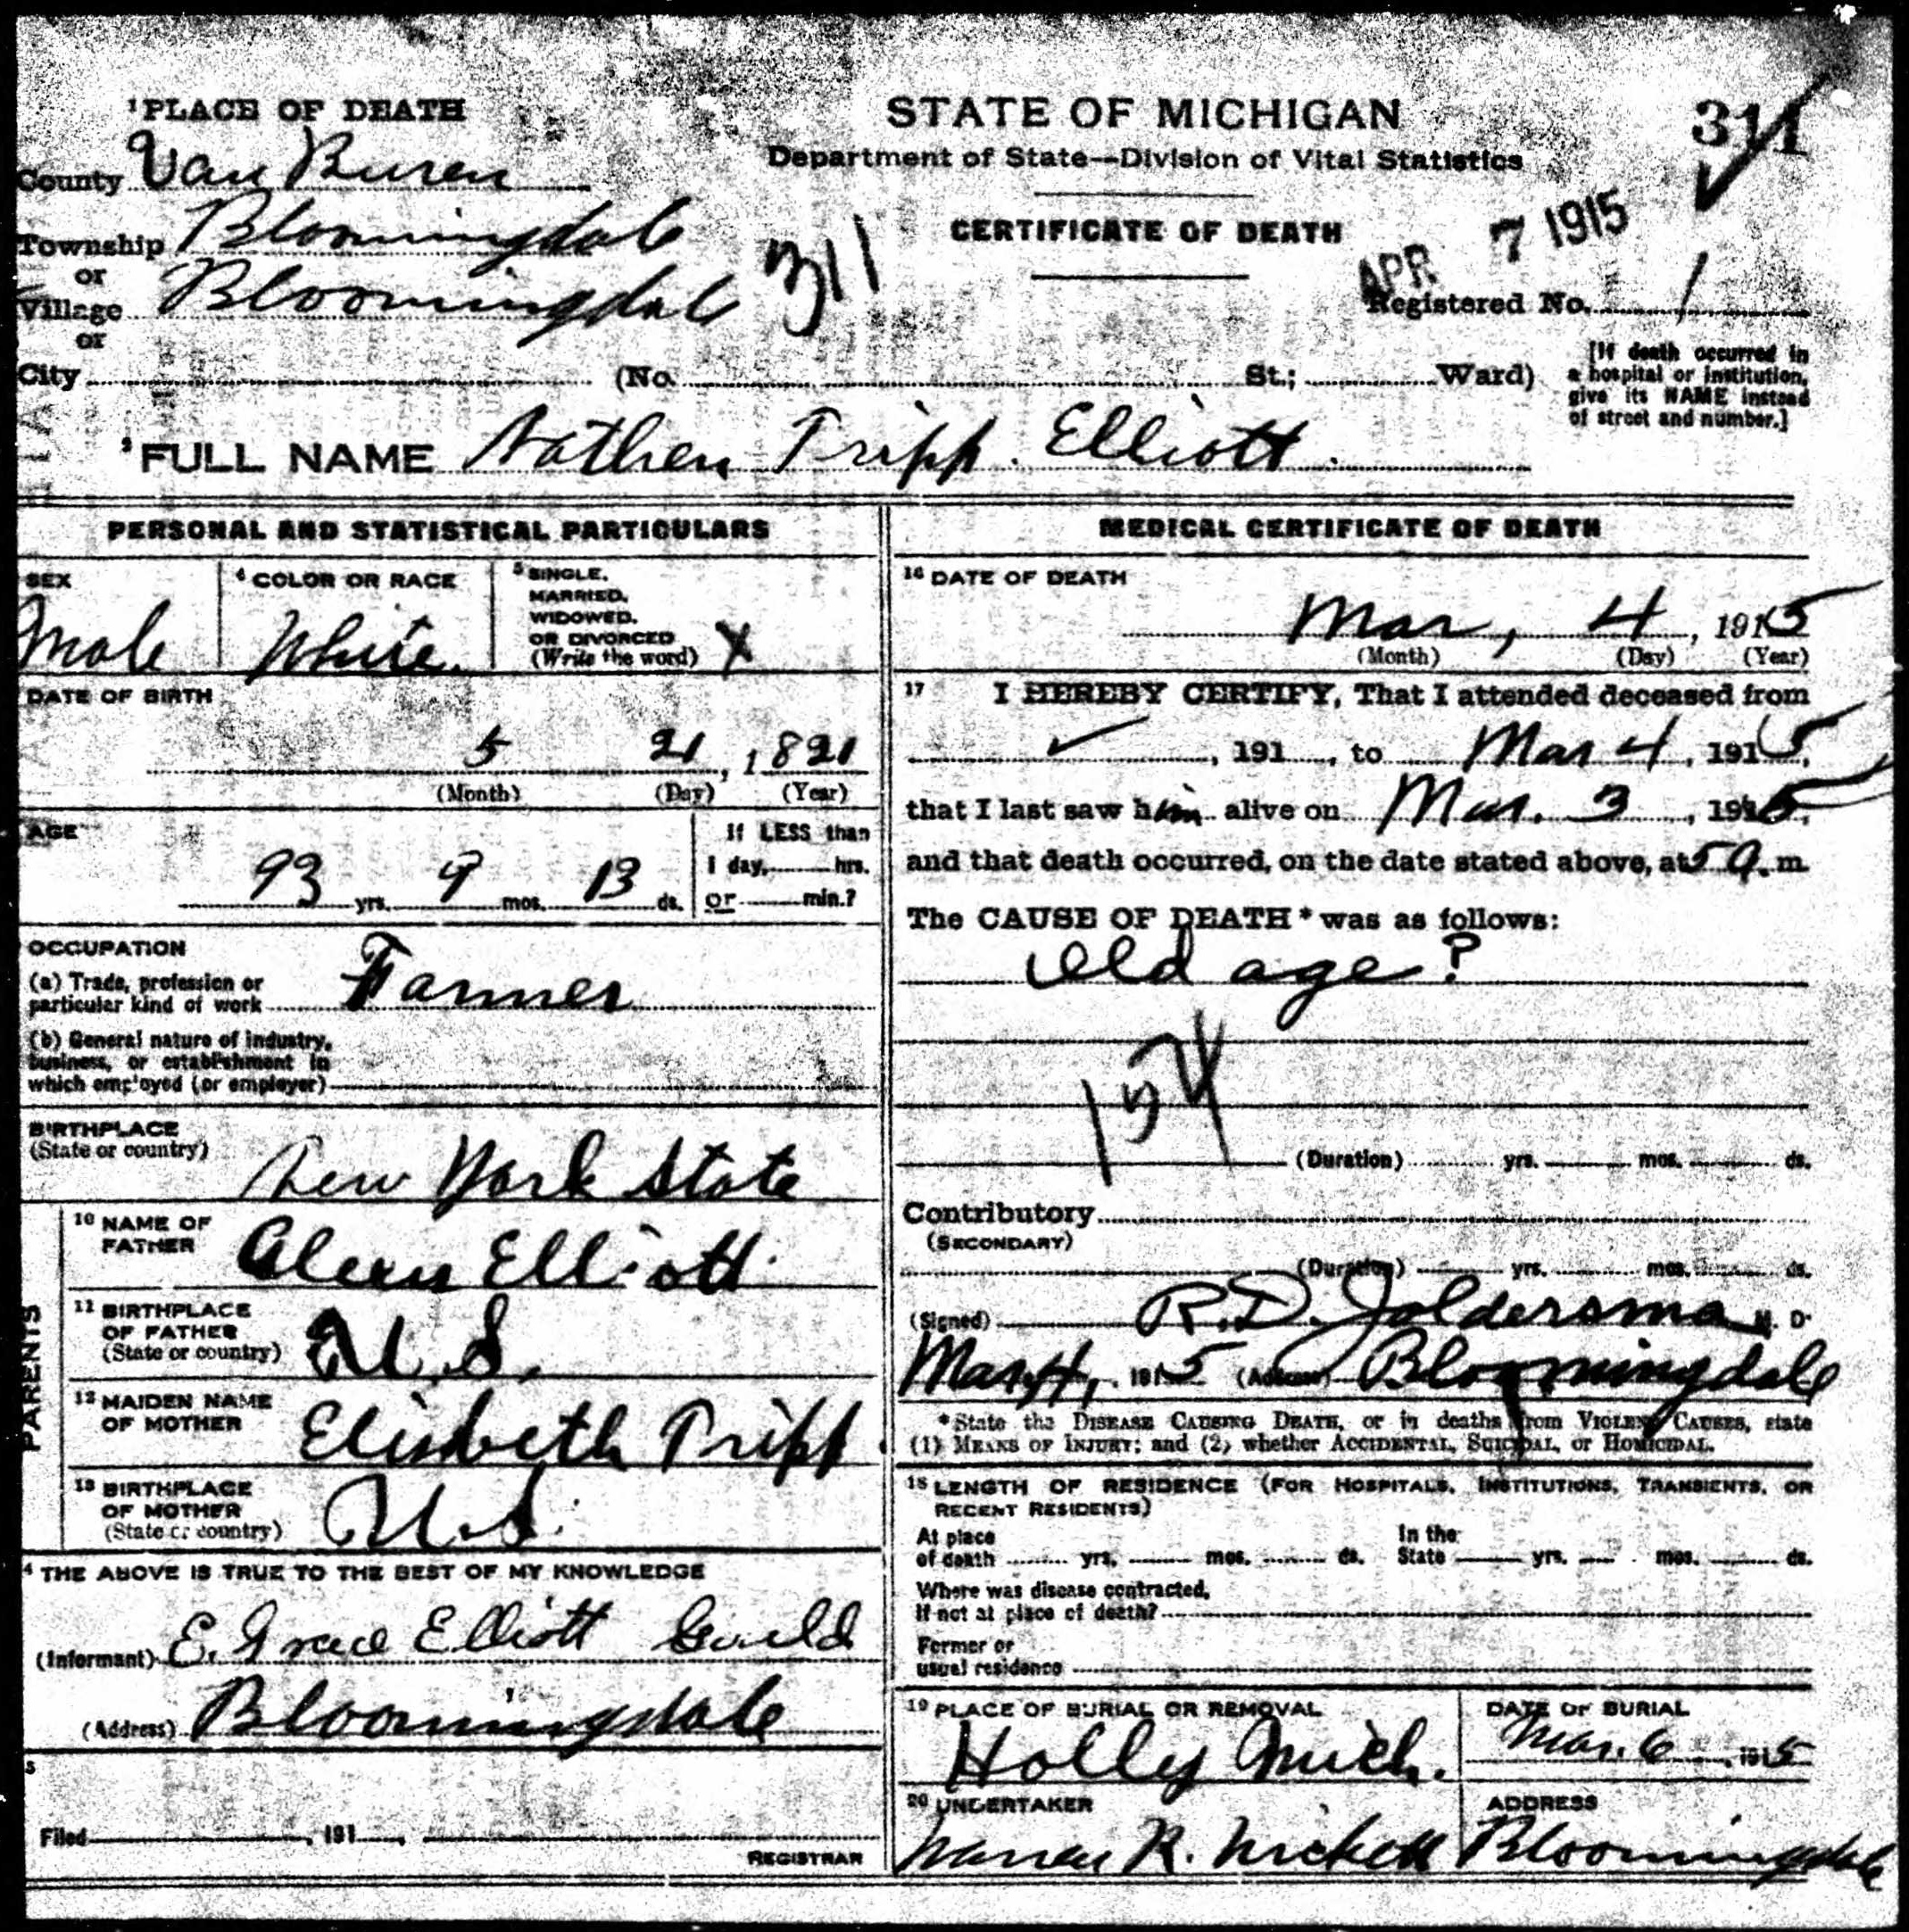 1 PLACE OF DEATH
STATE OF MICHIGAN
311
County Van Buren
Department of State—Division of Vital Statistics
Township Bloomingdale
311
CERTIFICATE OF DEATH
APR 7 1915
or
Village Bloomingdale
Registered No. 1
or
City (No. St.; Ward)
[If death occurred in
a hospital or institution,
give its NAME instead
of street and number.]
2 FULL NAME Nathen Tripp. Elliott.
PERSONAL AND STATISTICAL PARTICULARS
SEX
Male
4 COLOR OR RACE
White.
5 SINGLE,
MARRIED,
WIDOWED,
OR DIVORCED
(Write the word) X
DATE OF BIRTH
5 21, 1821
(Month) (Day) (Year)
AGE
93 yrs. 9 mos. 13 ds.
If LESS than
1 day, hrs.
or min.?
OCCUPATION
(a) Trade, profession or
particular kind of work Farmer
(b) General nature of industry,
business, or establishment in
which employed (or employer)
BIRTHPLACE
(State or country)
New York State
PARENTS
10 NAME OF
FATHER
Elliott
11 BIRTHPLACE
OF FATHER
(State or country)
U.S.
12 MAIDEN NAME
OF MOTHER
Elisbeth Tripp.
13 BIRTHPLACE
OF MOTHER
(State or country)
U.S.
4 THE ABOVE IS TRUE TO THE BEST OF MY KNOWLEDGE
(Informant) E. Grace Elliott Gould
(Address) Bloomingdale
5
Filed , 191 ,
REGISTRAR
MEDICAL CERTIFICATE OF DEATH
16 DATE OF DEATH
Mar, 4, 1915
(Month) (Day) (Year)
17 I HEREBY CERTIFY, That I attended deceased from
✓, 191 , to Mar 4, 1915,
that I last saw him alive on Mar. 3, 1915,
and that death occurred, on the date stated above, at 5 a. m
The CAUSE OF DEATH* was as follows:
Old age?
154
(Duration) yrs. mos. ds.
Contributory
(SECONDARY)
(Duration) yrs. mos. ds.
(Signed) R.D. Joldersma M. D.
Mar 4, 1915 (Address) Bloomingdale
*State the DISEASE CAUSING DEATH, or in deaths from VIOLENT CAUSES, state
(1) MEANS OF INJURY; and (2) whether ACCIDENTAL, SUICIDAL, or HOMICIDAL.
18 LENGTH OF RESIDENCE (FOR HOSPITALS, INSTITUTIONS, TRANSIENTS, OR
RECENT RESIDENTS)
At place
of death yrs. mos. ds.
In the
State yrs. mos. ds.
Where was disease contracted,
if not at place of death?
Former or
usual residence
19 PLACE OF BURIAL OR REMOVAL
Holly Mich.
DATE OF BURIAL
Mar. 6, 1915
20 UNDERTAKER
R.
ADDRESS
Bloomingdale